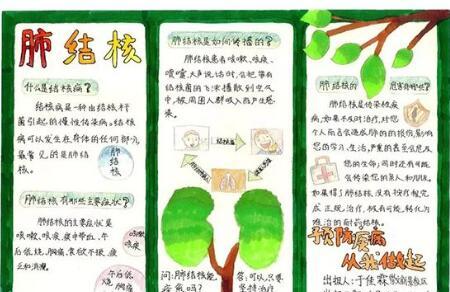 肺结核
什么是结核病?
结核病是一种由结核杆菌
引起的慢性传染病。结核
病可以发生在身体的任何部分,
最常见的是肺结
核。
肺结核
肺结核有那些主要症状?
肺结核的主要症状是
咳嗽、咳痰、痰中带血、午
后低烧、胸痛、食欲不振、疲
乏和消瘦。
咳嗽
咳痰
午后低
烧胸痛
肺结核是如何传播的?
肺结核患者可以咳嗽、咳痰、
喷嚏、大声说话时,会把带有
结核菌的飞沫播散到空气
中,被周围人群吸入而产生感
染。
结核菌
问:肺结核能
治愈吗?
答:可以,只要
坚持治疗
肺结核的
肺结核是传染性疾
病,如果不及时治疗,对您
个人而言会造成肺的损伤,影响
您的学习、生活,严重的甚至会危及
您的生命;同时还有可能
会传染您的亲人和朋友。
如果得了肺结核,没有按疗程完
成正规治疗,极有可能转化为
难治的耐药结核。
预防疾病
从我做起
出担人:于佳霖